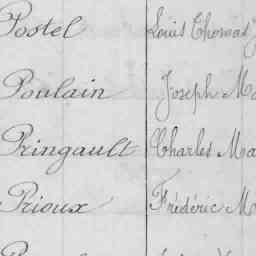 Postel Louis Thomas
Poulain Joseph Ma
Pringault Charles Ma
Prioux Frédéric M